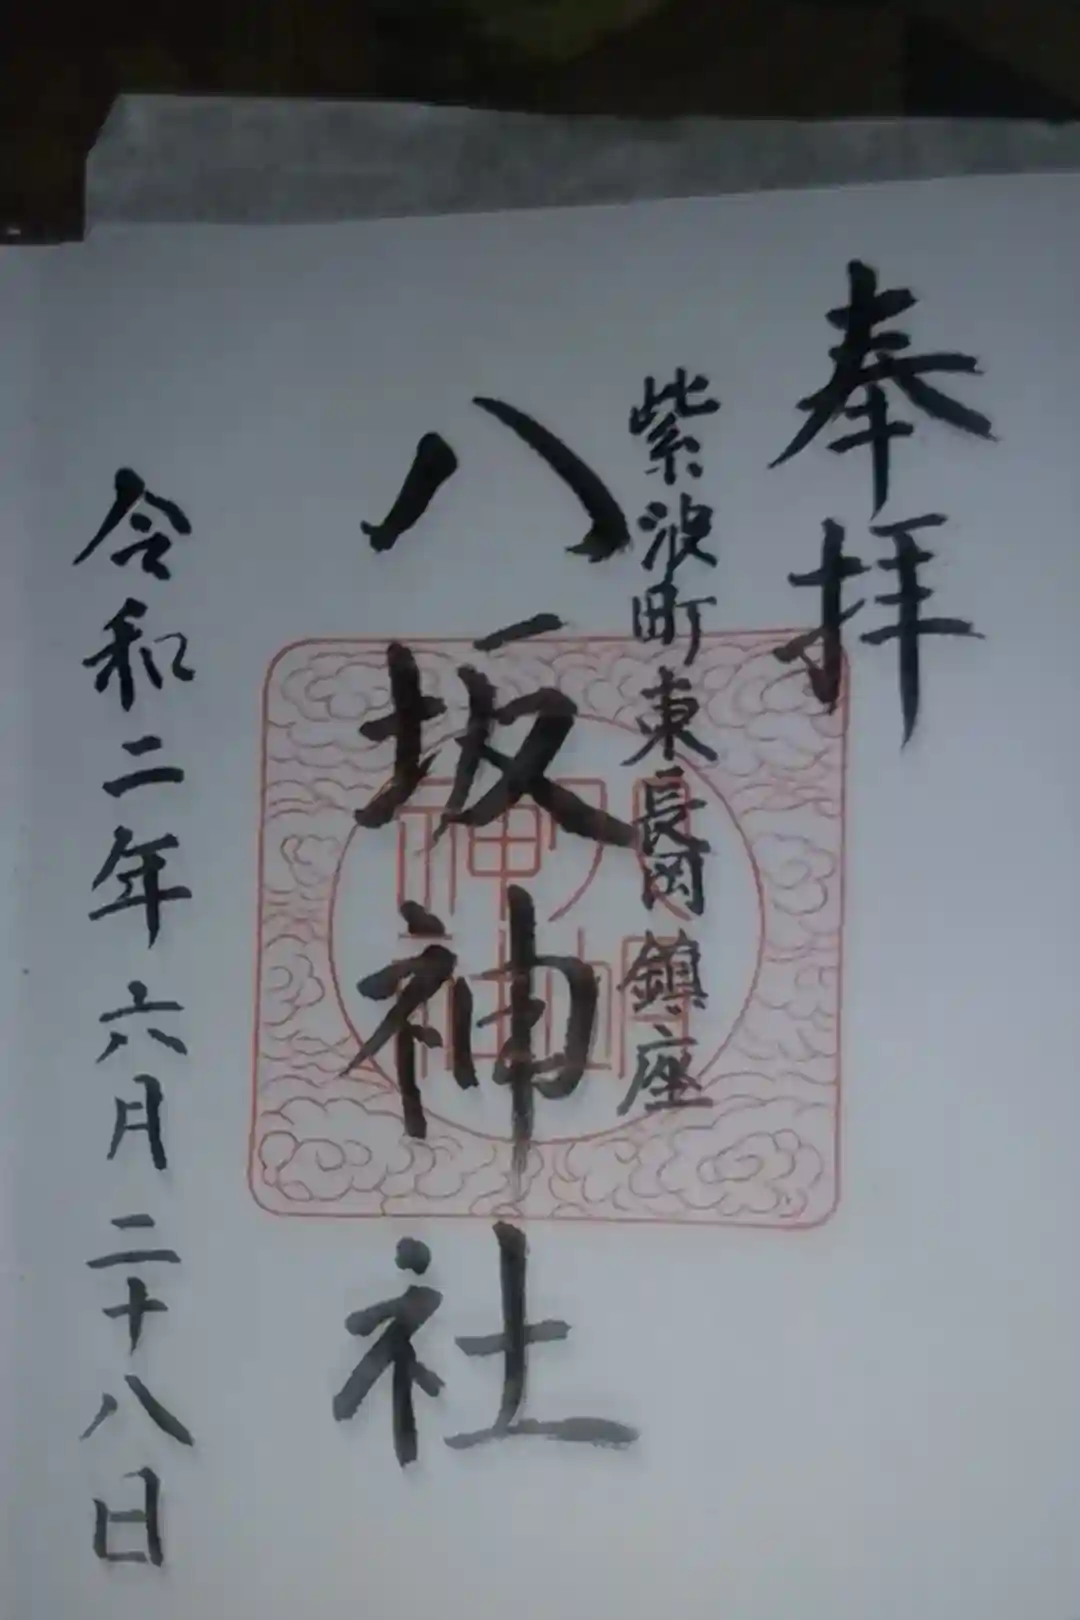 奉拝
紫波町東長岡鎮座
八坂神社
令和二年六月二十八日
八坂
神社